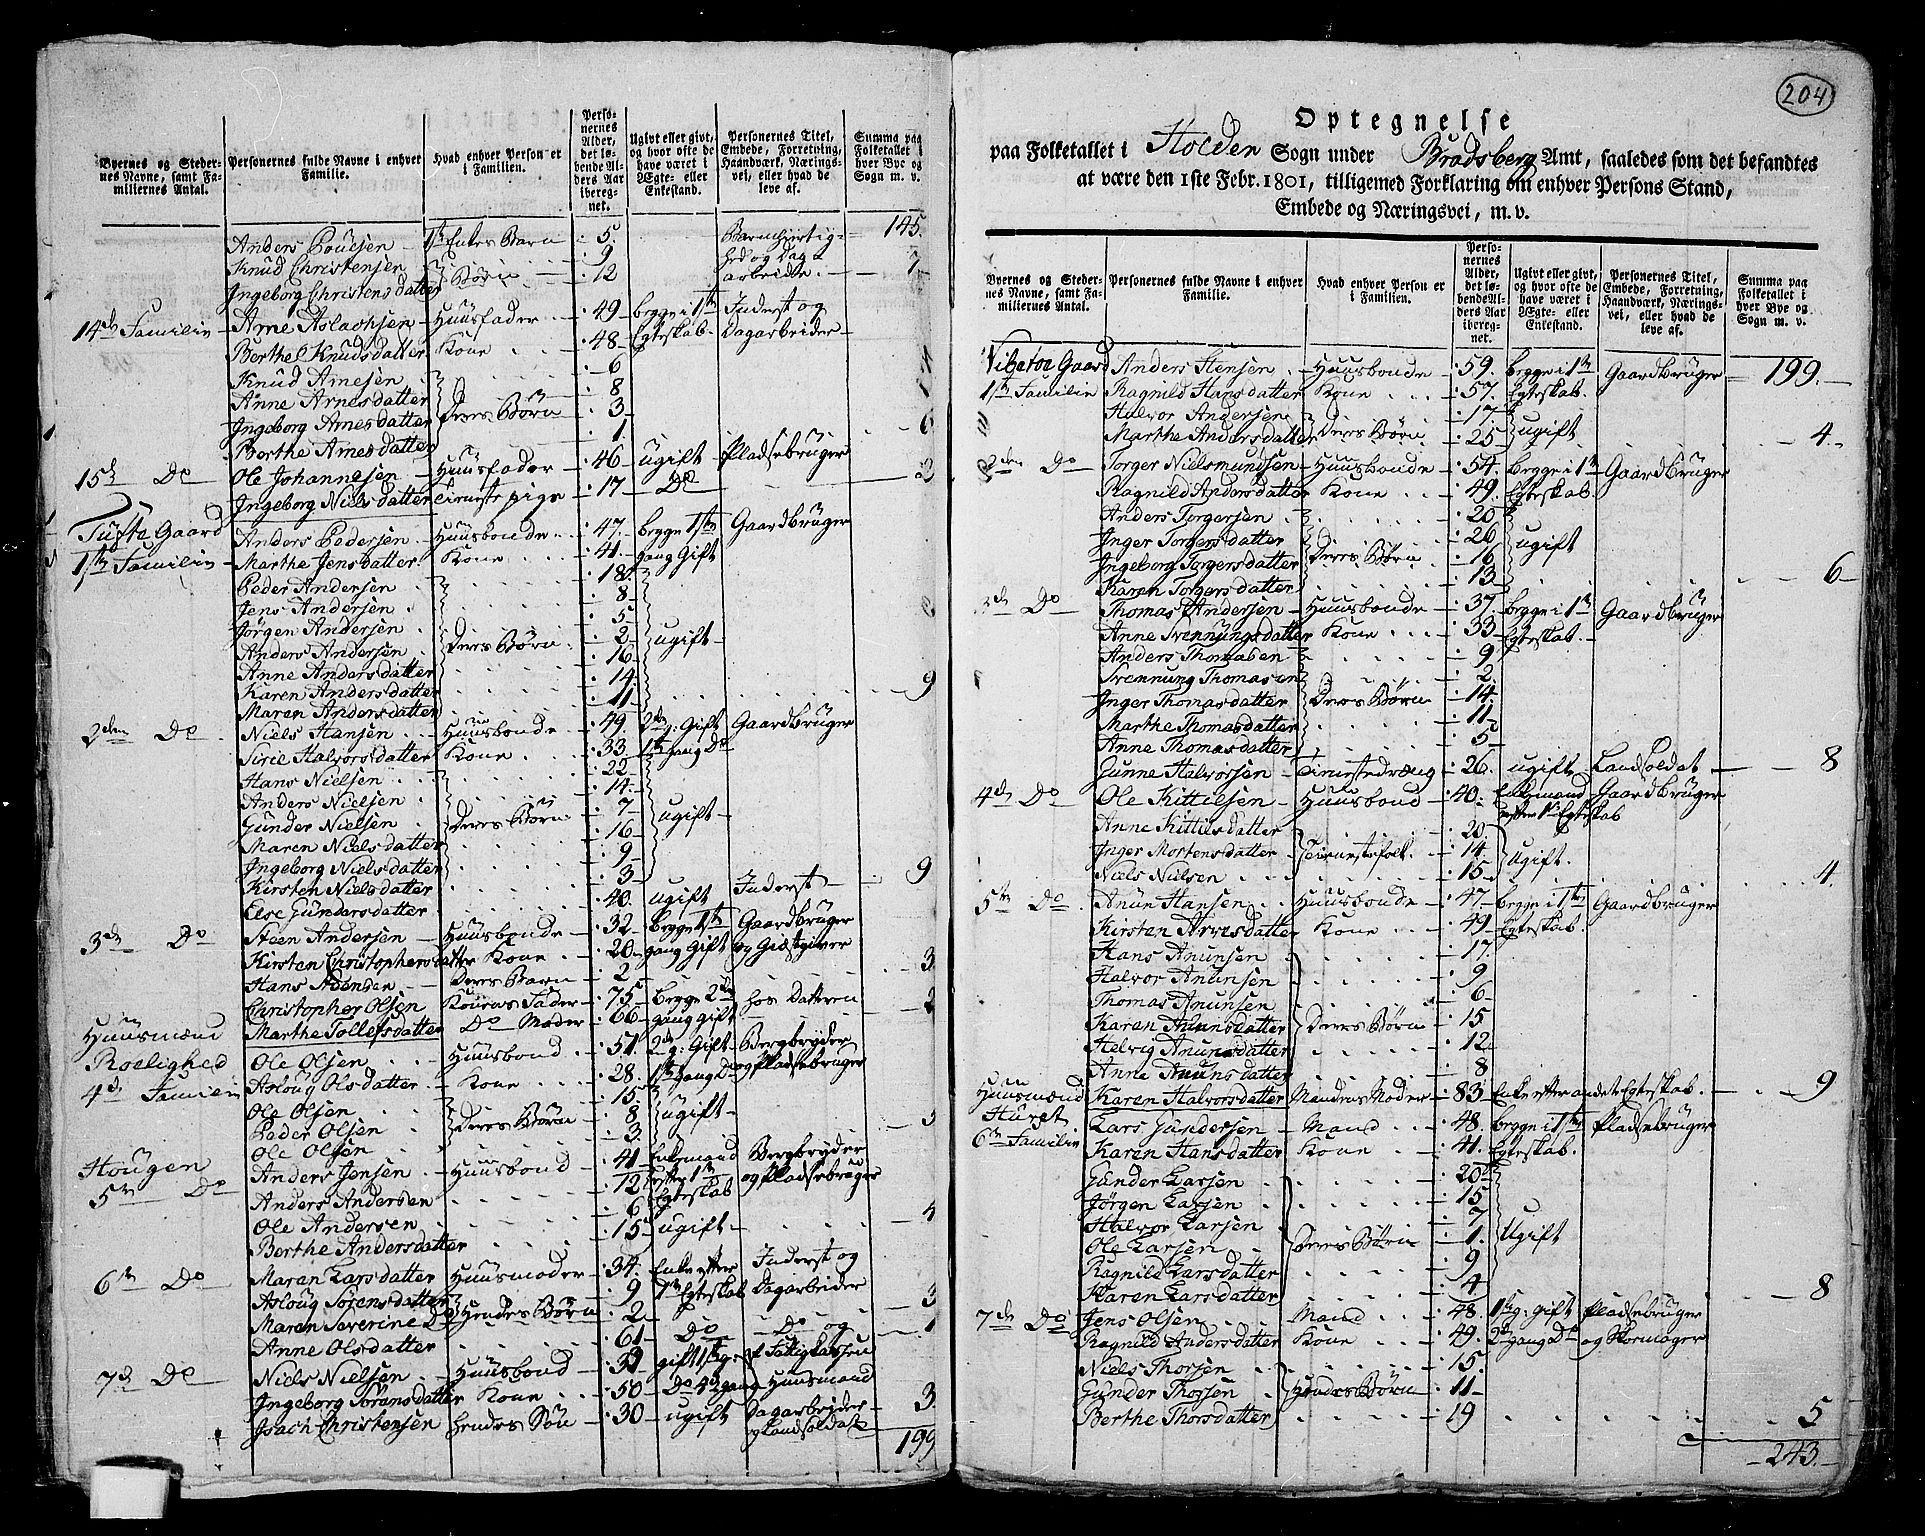 Byernes og Steder-
nes Navne, samt Fa-
miliernes Antal.
Personernes fulde Navne i enhver
Familie.
Hvad enhver Person er
i Familien.
Perso-
nernes
Alder,
det lø-
bende Al-
ders Aar
ibereg-
net.
Ugivt eller givt,
og hvor ofte de
have været i
Ægte- eller
Enkestand.
Personernes Titel,
Embede, Forretning,
Haandværk, Nærings-
vei, eller hvad de
leve af.
Summa paa
Folketallet i
hver Bye og
Sogn m. v.
145.
Anders Poulsen 1ste Enkes Barn 5. Barmhiertig=
Knud Christensen 9 hed og Dag=
Ingeborg Christensdatter Børn 12 arbeide.
14de Familie Arne Aslachsen Huusfader 49 begge i 1ste Inderst og
Berthe Knudsdatter Kone 48 Egteskab Dagarbeider
Knud Arnesen 6
Anne Arnesdatter 8
Ingeborg Arnesdatter Deres Børn 3 6
Berthe Arnesdatter 1.
15de Do Ole Johannesen Huusfader 46 ugift Pladsebruger
Ingeborg Nielsdatter tieneste pige 17 Do 2
Tufte Gaard
1ste Familie Anders Pedersen Huusbonde 47. begge 1ste Gaardbruger
Marthe Jensdatter Kone 41. gang Gift
Peder Andersen 18
Jens Andersen 8
Jørgen Andersen 5
Anders Andersen Deres Børn 2 ugift
Anne Andersdatter 16
Karen Andersdatter 14
Maren Andersdatter 11 9
2den Do Niels Hansen Huusbonde 49. 2den g: Gift Gaardbruger
Sirie Halvorsdatter Kone 33. 1ste gang Do
Hans Nielsen 22
Anders Nielsen 14
Gunder Nielsen Deres Børn 7 ugift
Maren Nielsdatter 16
Ingeborg Nielsdatter 9
Kirsten Nielsdatter 3 9
Else Gundersdatter 40. ugift Inderst
3de Do Steen Andersen Huusbonde 32 begge 1ste Gaardbruger
Kirsten Christophersdatter Kone 20 gang Gift og Giæstgiver
Hans Deres Barn 2 3
Christopher Olsen Konens Fader 75 begge 2den hos Datteren
Marthe Tollefsdatter Do Moder 66 gang gift 2
Huusmænd
Roelighed
4de Familie Ole Olsen Huusbond 51. 2den g: Gift Bergbryder
Aslaug Olsdatter Kone 28 1ste gang Do og Pladsebruger
Ole Olsen 15
Peder Olsen Deres Børn 8 ugift
Ole Olsen 3 5
Hougen
5te Do Anders Jensen Huusbond 41 Enkemand Bergbryder
Anders Andersen 12 efter 1ste og Pladsebruger
Ole Andersen 6 Egteskab
Berthe Andersdatter 15 ugift 4
6te Do Maren Larsdatter Huusmoder 34. Enke efter Inderst og
Aslaug Sørensdatter 9 1ste Egteskab Dagarbeider
Maren Severine Do Hendes Børn 2 3
Anne Olsdatter 61 Do Do og 1
7de Do Niels Nielsen Huusbond 39 gift 1ste g: af Fattigkassen
Ingeborg Sørensdatter Kone 50 Do 4de gang Huusmand
Isach Christensen hendes Søn 30 ugift Dagarbeider 3
og Landsoldat
199
204
Optegnelse
paa Folketallet i Holden Sogn under Bradsberg Amt, saaledes som det befandtes
at være den 1ste Febr. 1801, tilligemed Forklaring om enhver Persons Stand,
Embede og Næringsvei, m. v.
Byernes og Steder-
nes Navne, samt Fa-
miliernes Antal.
Personernes fulde Navne i enhver
Familie.
Hvad enhver Person er
i Familien.
Perso-
nernes
Alder,
det lø-
bende Al-
ders Aar
ibereg-
net.
Ugivt eller givt,
og hvor ofte de
have været i
Ægte- eller
Enkestand.
Personernes Titel,
Embede, Forretning,
Haandværk, Nærings-
vei, eller hvad de
leve af.
Summa paa
Folketallet i
hver Bye og
Sogn m. v.
Vibetoe Gaard Anders Stensen Huusbonde 59. begge i 1ste Gaardbruger 199.
1ste Familie Ragnild Hansdatter Kone 57. Egteskab.
Halvor Andersen 17
Marthe Andersdatter Deres Børn 25 ugift 4
2den Do Torger Nielsmundsen Huusbonde 54. begge i 1ste Gaardbruger
Ragnild Andersdatter Kone 49. Egteskab.
Anders Torgersen 20
Inger Torgersdatter 26 ugift
Ingeborg Torgersdatter Deres Børn 16
Karen Torgersdatter 13 6
3de Do Thomas Andersen Huusbonde 37. begge i 1ste Gaardbruger
Anne Svennungsdatter Kone 33 Egteskab.
Anders Thomasen 9
Svennung Thomasen 2
Inger Thomasdatter Deres Børn 14
Marthe Thomasdatter 11
Anne Thomasdatter 5
Gunne Halvorsen Tienestedræng 26. ugift Landsoldat 8
4de Do Ole Kittilsen Huusbond 40. Enkemand Gaardbruger
efter 1te Egteskab
Anne Kittilsdatter 20
Inger Mortensdatter Tienestefolk. 14 Ugift.
Niels Nielsen 15 4.
5te Do Anun Hansen Huusbonde 47 begge i 1ste Gaardbruger
Kirsten Arvesdatter Kone 49 Egteskab.
Hans Anunsen 17.
Halvor Anunsen 9
Thomas Anunsen 6
Karen Anunsdatter Deres Børn 15
Helvig Anunsdatter 12
Anne Anunsdatter 8
Karen Halvorsdatter Mandens Moder 83 Enke efter andet Egteskab. 9
Huusmænd
Huset
6te Familie Lars Gundersen Mand 48. begge i 1ste Pladsebruger
Karen Hansdatter Kone 41. Egteskab.
Gunder Larsen 20
Jørgen Larsen 15
Halvor Larsen 7
Ole Larsen Deres Børn 1. Ugift
Ragnild Larsdatter 9
Karen Larsdatter 4 8
7de Do Jens Olsen Mand 48. 1ste g: gift Pladsebruger
Ragnild Andersdatter Kone 49. 2den gang Do og Skomager
Niels Thorsen 15.
Gunder Thorsen Hendes Børn 11
Berthe Thorsdatter 19 5
243.